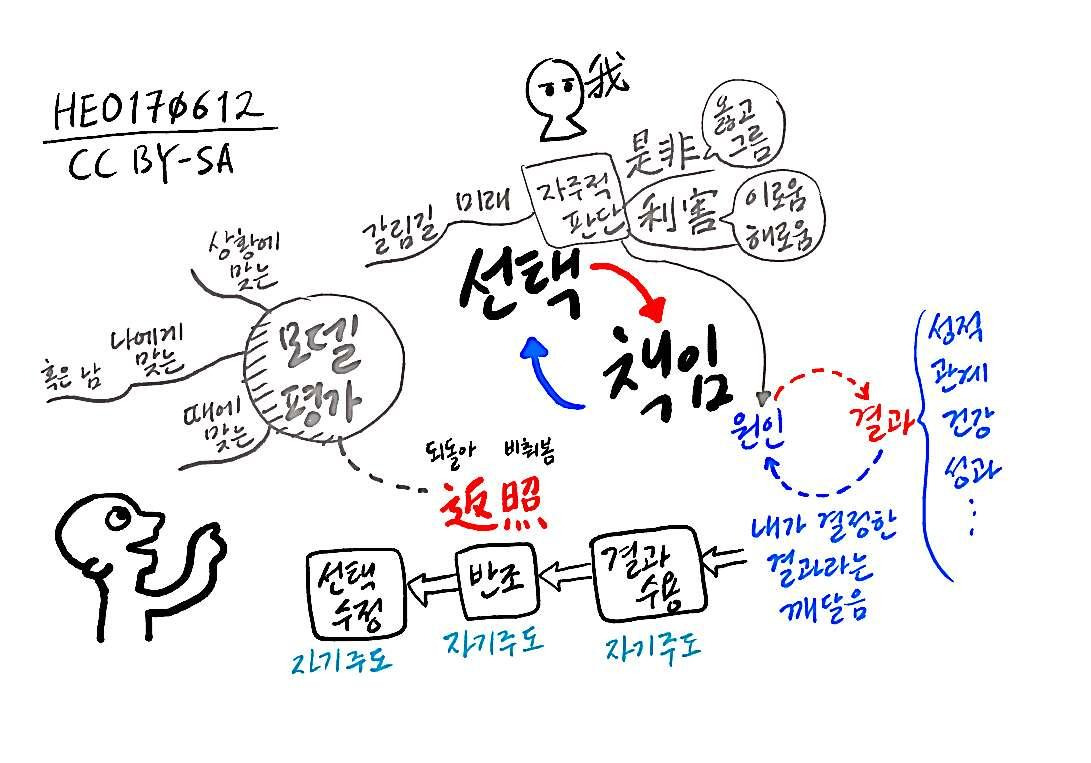 HEO170612
CC BY-SA
我
자주적
판단
是非
옳고
그름
利害
이로움
해로움
미래
갈림길
선택
책임
상황에
맞는
나에게
맞는
혹은 남
때에
맞는
모델
평가
원인
결과
성적
관계
건강
성과
⋮
되돌아 비춰봄
返照
내가 결정한
결과라는
깨달음
결과
수용
자기주도
반조
자기주도
선택
수정
자기주도